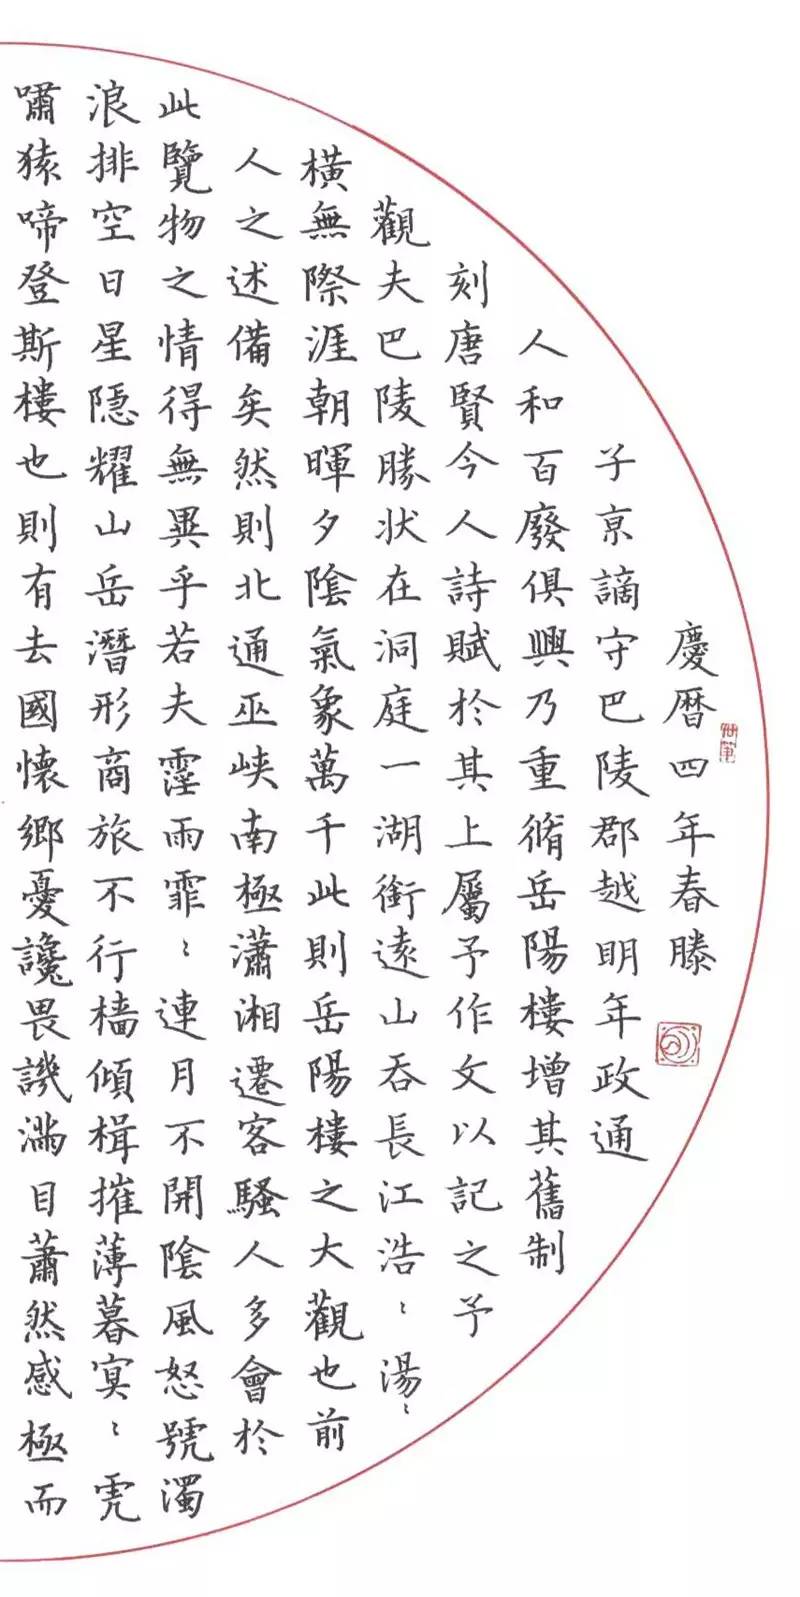 慶暦四年春滕
子亰謫守巴陵郡越明年政通
人和百廢俱興乃重脩岳陽樓增其舊制
刻唐賢今人詩賦於其上屬予作文以記之予
觀夫巴陵勝状在洞庭一湖銜遠山吞長江浩〻湯〻
橫無際涯朝暉夕陰氣象萬千此則岳陽樓之大觀也前
人之述備矣然則北通巫峽南極瀟湘遷客騷人多會於
此覽物之情得無異乎若夫霪雨霏〻連月不開陰風怒號濁
浪排空日星隱耀山岳潛形商旅不行檣傾楫摧薄暮冥〻虎
嘯猿啼登斯樓也則有去國懷鄉憂讒畏譏滿目蕭然感極而